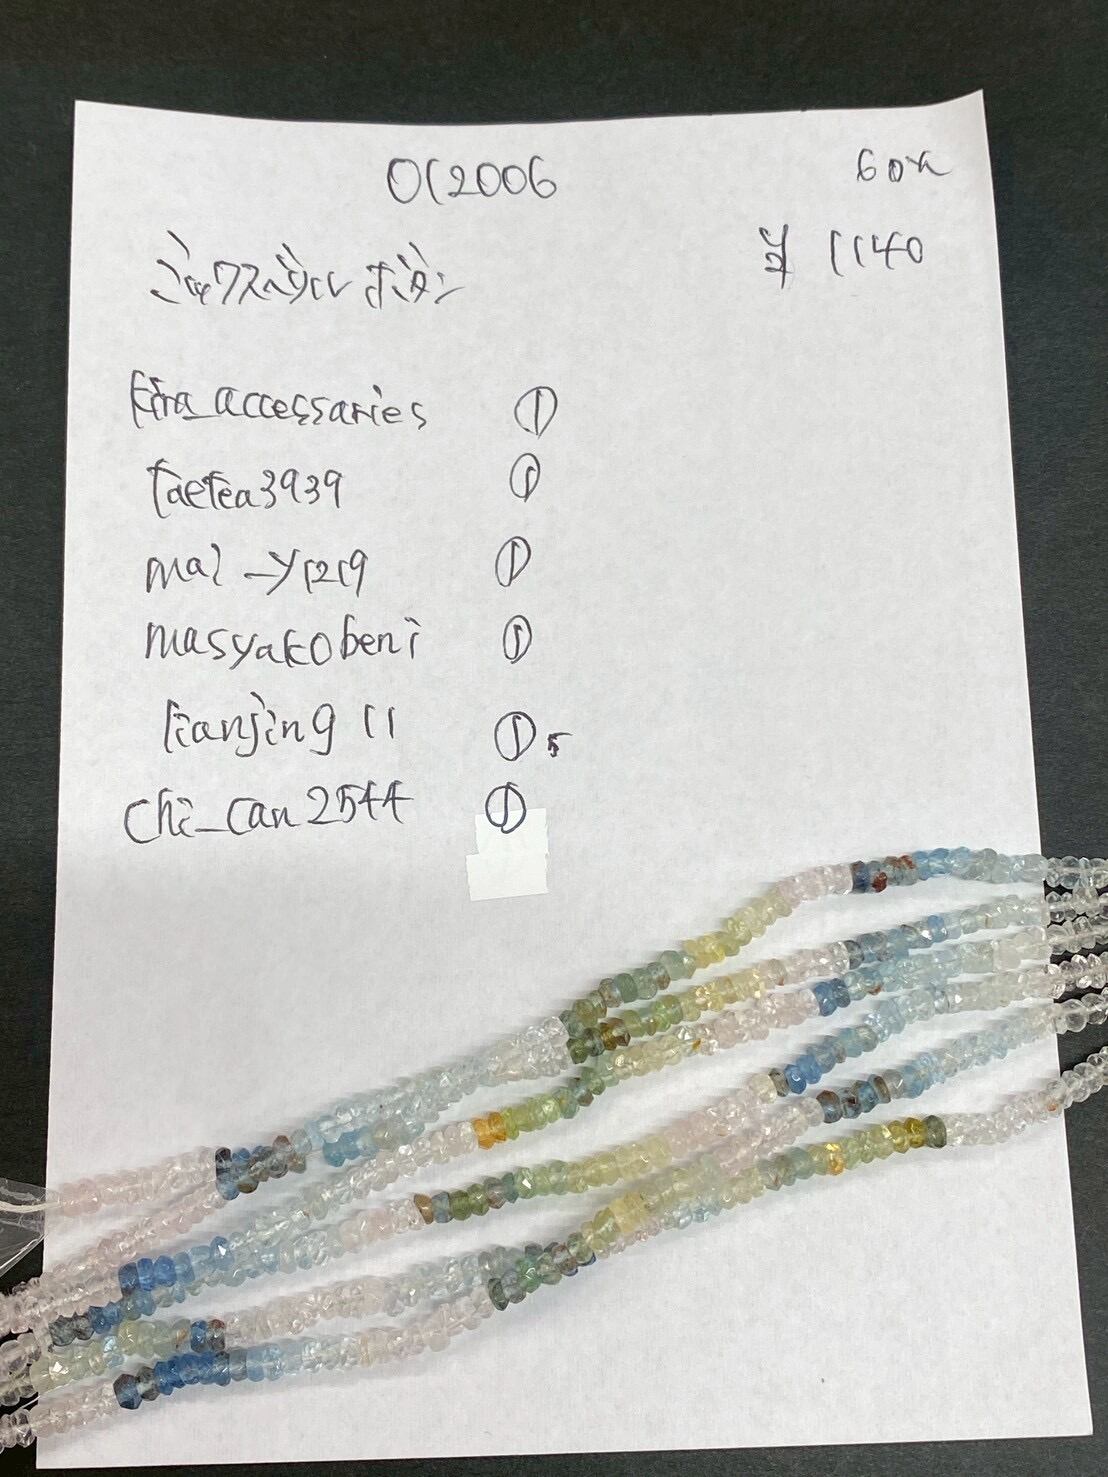 O12006
60%
ミックスベリル ボタン
¥ 1140
kira_accessaries ①
taetea3939 ①
mal_y1219 ①
masyakobeni ①
tianjing 11 ① 5
chi_can2544 ①